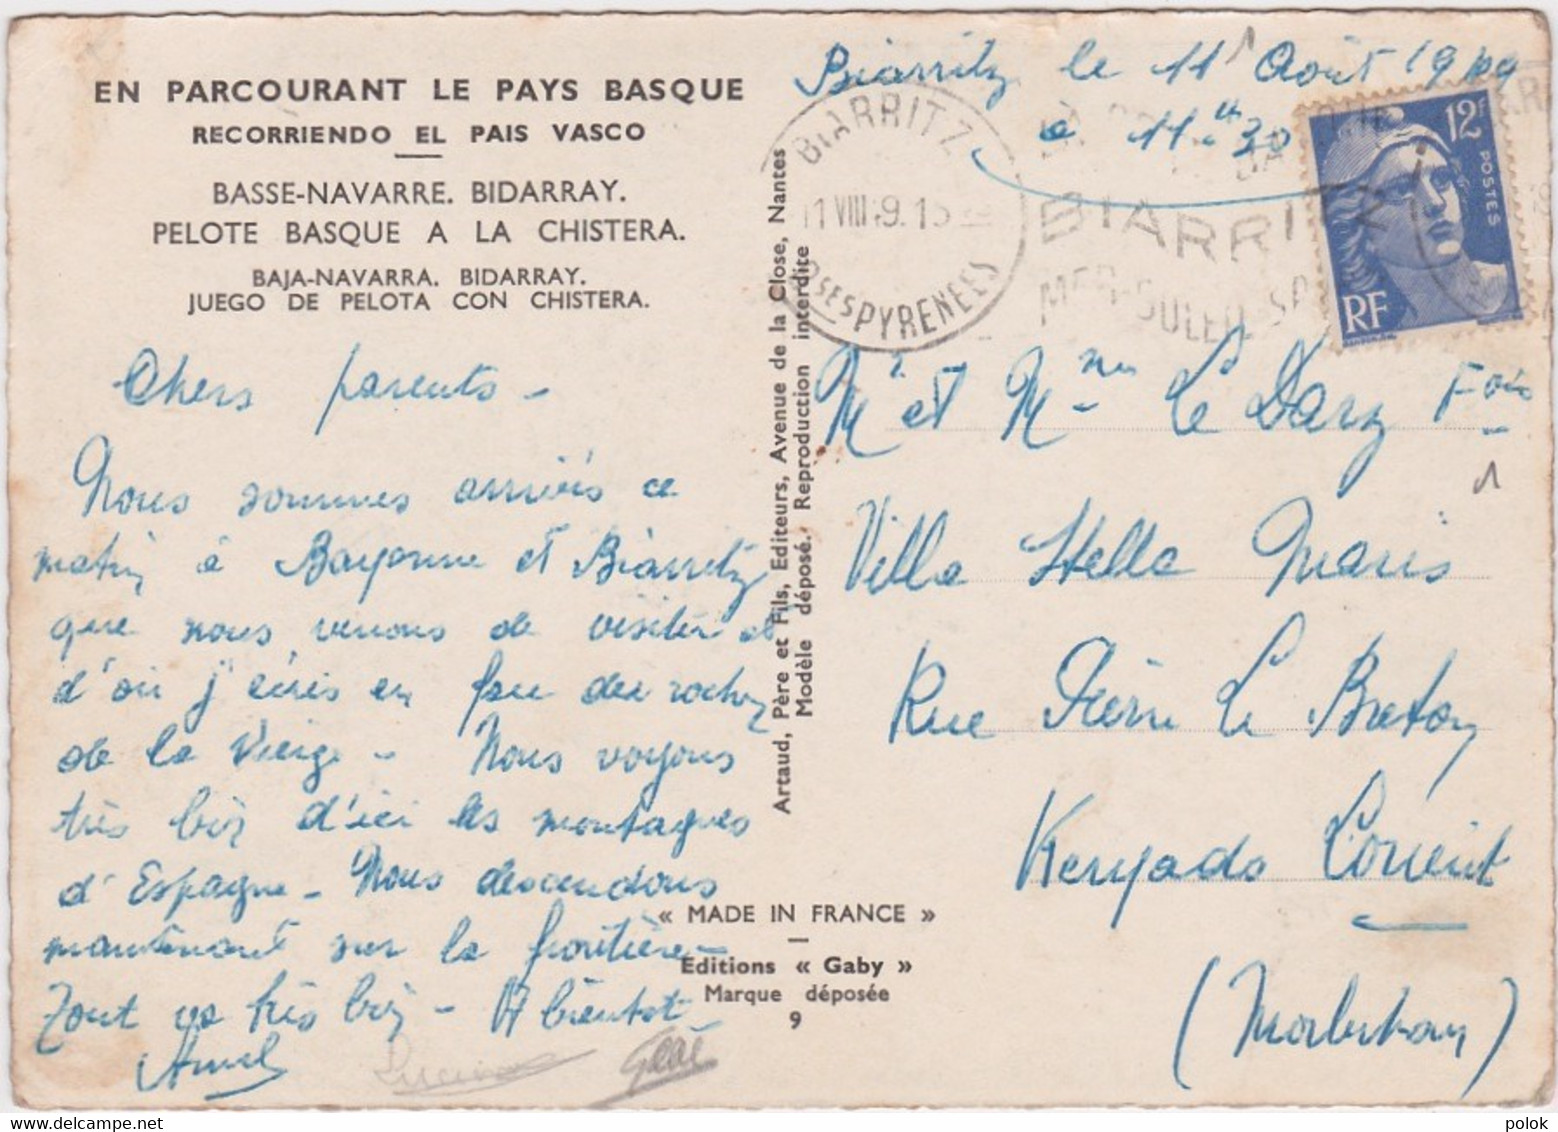 EN PARCOURANT LE PAYS BASQUE
RECORRIENDO EL PAIS VASCO
BASSE-NAVARRE. BIDARRAY.
PELOTE BASQUE A LA CHISTERA.
BAJA-NAVARRA. BIDARRAY.
JUEGO DE PELOTA CON CHISTERA.
Chers parents -
Nous sommes arrivés ce
matin à Bayonne et Biarritz
que nous venons de visiter et
d'où j'écris en face du rocher
de la Vierge - Nous voyons
très bien d'ici les montagnes
d'Espagne - Nous descendons
maintenant sur la frontière -
Tout va très bien - A bientôt -
Lucienne
« MADE IN FRANCE »
Editions « Gaby »
Marque déposée
9
Artaud, Père et Fils, Editeurs, Avenue de la Close, Nantes
Modèle déposé. Reproduction interdite
Biarritz le 11 Août 1949
à 11h 30
BIARRITZ
11 VIII 49. 15
BSES PYRENEES
BIARRITZ
MER-SOLEIL
12F
POSTES
RF
Mr et Mme Le Darz Fois
Villa Stella Maris
Rue Pierre Le Breton
Keryado Lorient
(Morbihan)
delcampe.net
polok